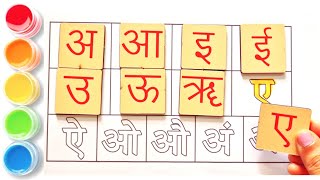 अ आ इ ई
उ ऊ ऋ ए
ऐ ओ औ अं
ए